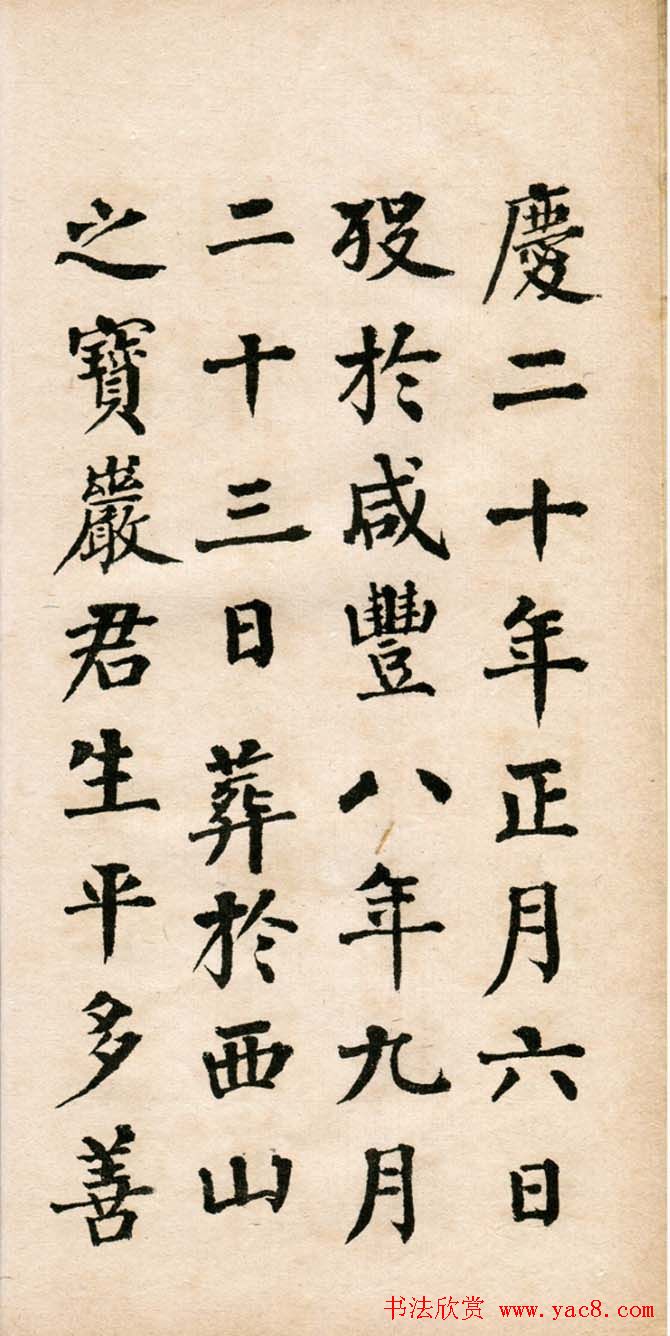 慶二十年正月六日
歿於咸豐八年九月
二十三日葬於西山
之寶巖君生平多善
书法欣赏 www.yac8.com